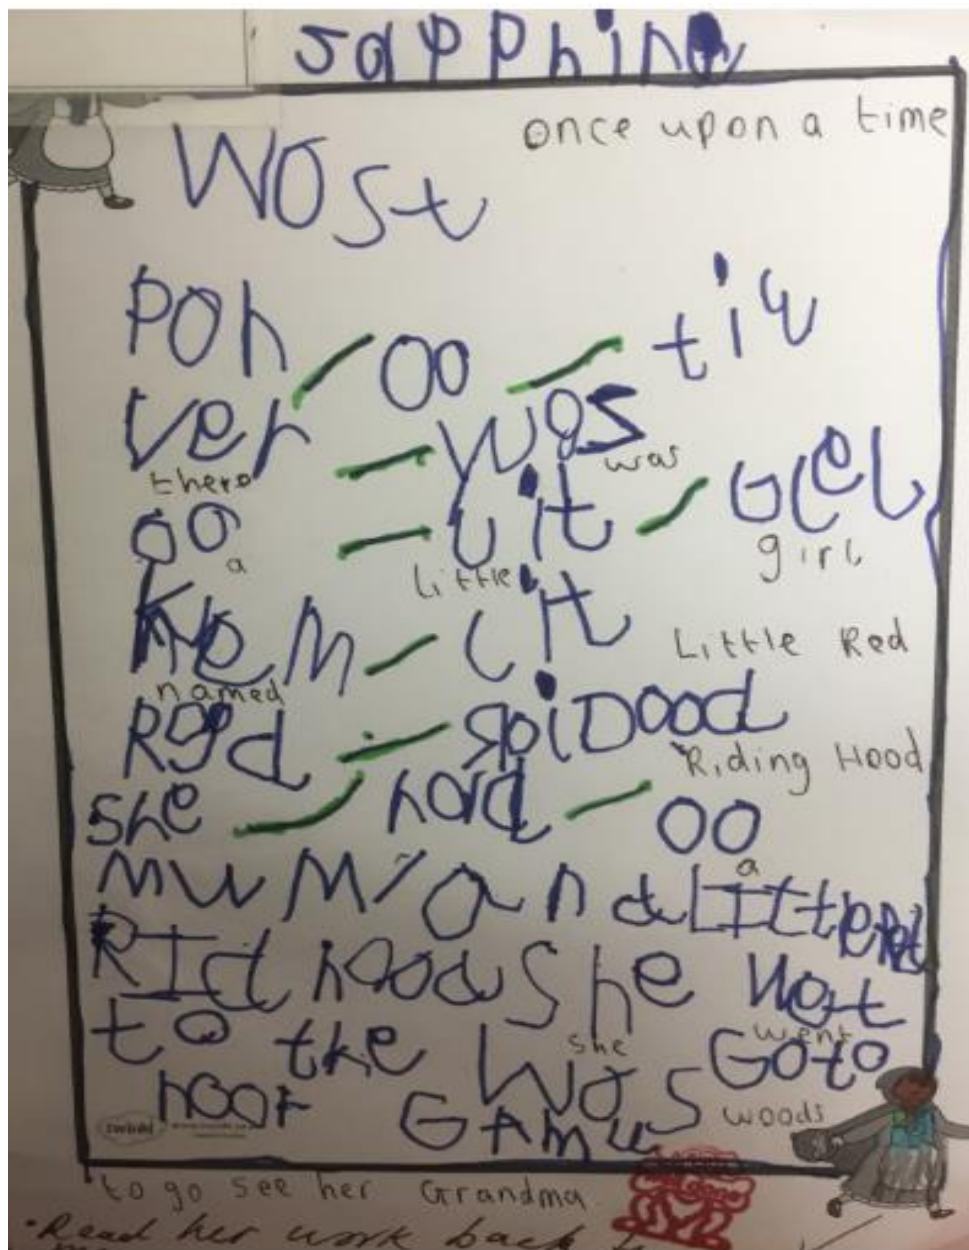 sapphire
once upon a time
Wost
Pon oo tiu
Ver was
there was
oo lit Glel
a little girl
Nem lit Little Red
named
Red RoiDood
Riding Hood
she had oo
a
mum and Little Red
RId hood She Wet
she went
to the Wos Go to
woods
hoor Gamu
to go see her Grandma
• Read her work back